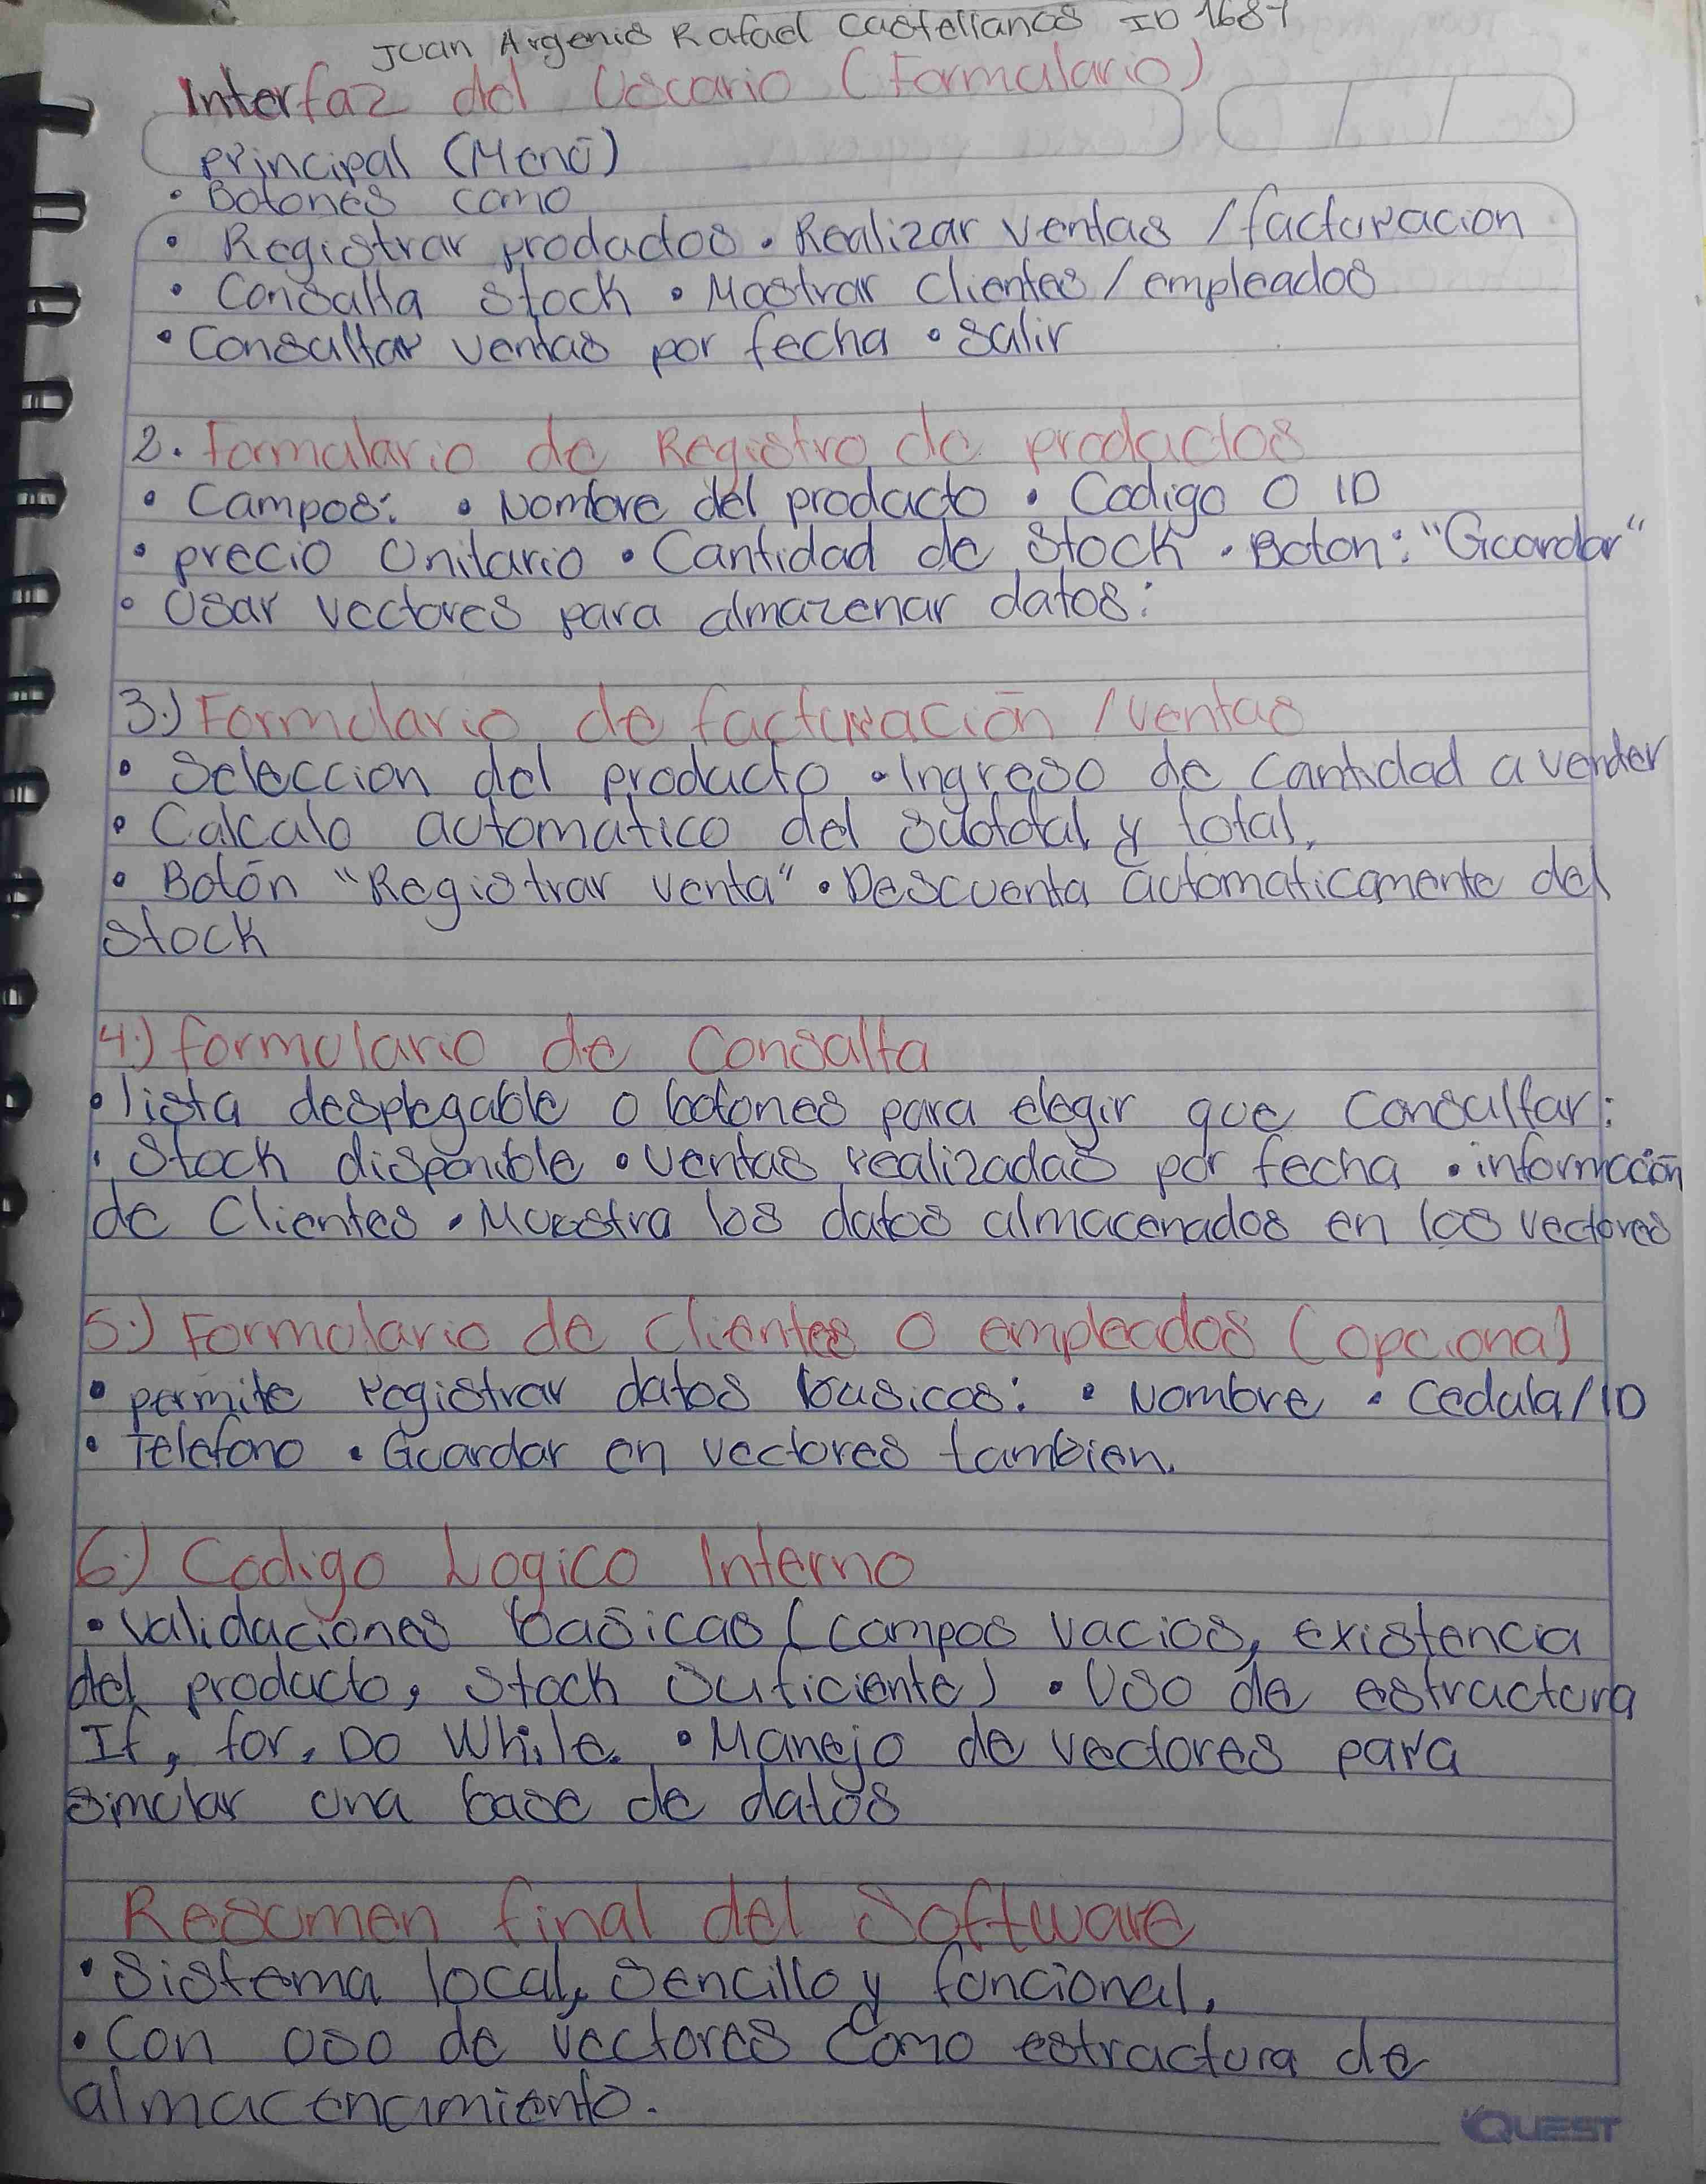 Juan Argenis Rafael Castellanos ID 1687
Interfaz del Usuario (Formulario)
principal (Menú)
• Botones como
• Registrar productos • Realizar ventas / facturacion
• Consulta Stock • Mostrar Clientes / empleados
• Consultar ventas por fecha • Salir
2. Formulario de Registro de productos
• Campos: • Nombre del producto • Codigo O ID
• precio Unitario • Cantidad de Stock • Boton: "Guardar"
• Usar vectores para almazenar datos:
3.) Formulario de facturación / ventas
• Seleccion del producto • Ingreso de Cantidad a vender
• Calculo automatico del Subtotal y total.
• Botón "Registrar venta" • Descuenta automaticamente del
Stock
4.) formulario de Consulta
• lista desplegable o botones para elegir que Consultar:
• Stock disponible • ventas realizadas por fecha • información
de Clientes • Muestra los datos almacenados en los vectores
5.) Formulario de Clientes O empleados (opcional)
• permite registrar datos basicos: • Nombre • Cedula/ID
• Telefono • Guardar en vectores tambien.
6.) Codigo Logico Interno
• Validaciones basicas (campos vacios, existencia
del producto, Stock Suficiente) • Uso de estructura
If, for, Do While. • Manejo de vectores para
simular una base de datos
Resumen final del Software
• Sistema local, Sencillo y funcional.
• Con uso de vectores Como estructura de
almacenamiento.
QUEST